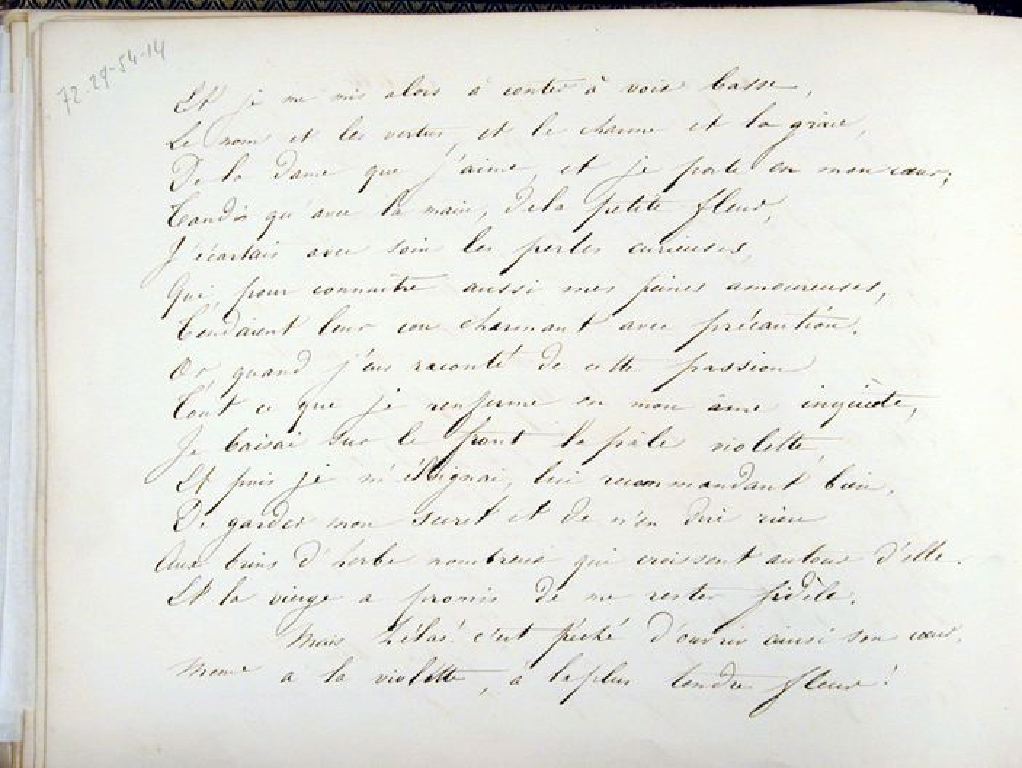 72.29-54-14
Et je me mis alors à conter à voix basse,
Le nom et les vertus, et le charme et la grâce,
De la dame que j'aime, et je porte en mon cœur;
Tandis qu'avec la main, de la petite fleur,
J'écartais avec soin les perles curieuses,
Qui, pour connaître aussi mes peines amoureuses,
Tendaient leur cou charmant avec précaution.
Or, quand j'eus raconté de cette passion
Tout ce que je renferme en mon âme inquiète,
Je baisai sur le front la pâle violette,
Et puis je m'éloignai, lui recommandant bien,
De garder mon secret et de n'en dire rien
Aux brins d'herbe nombreux qui croissent autour d'elle.
Et la vierge a promis de me rester fidèle.
Mais hélas! c'est péché d'ouvrir ainsi son cœur,
Meme a la violette, à la plus tendre fleur!